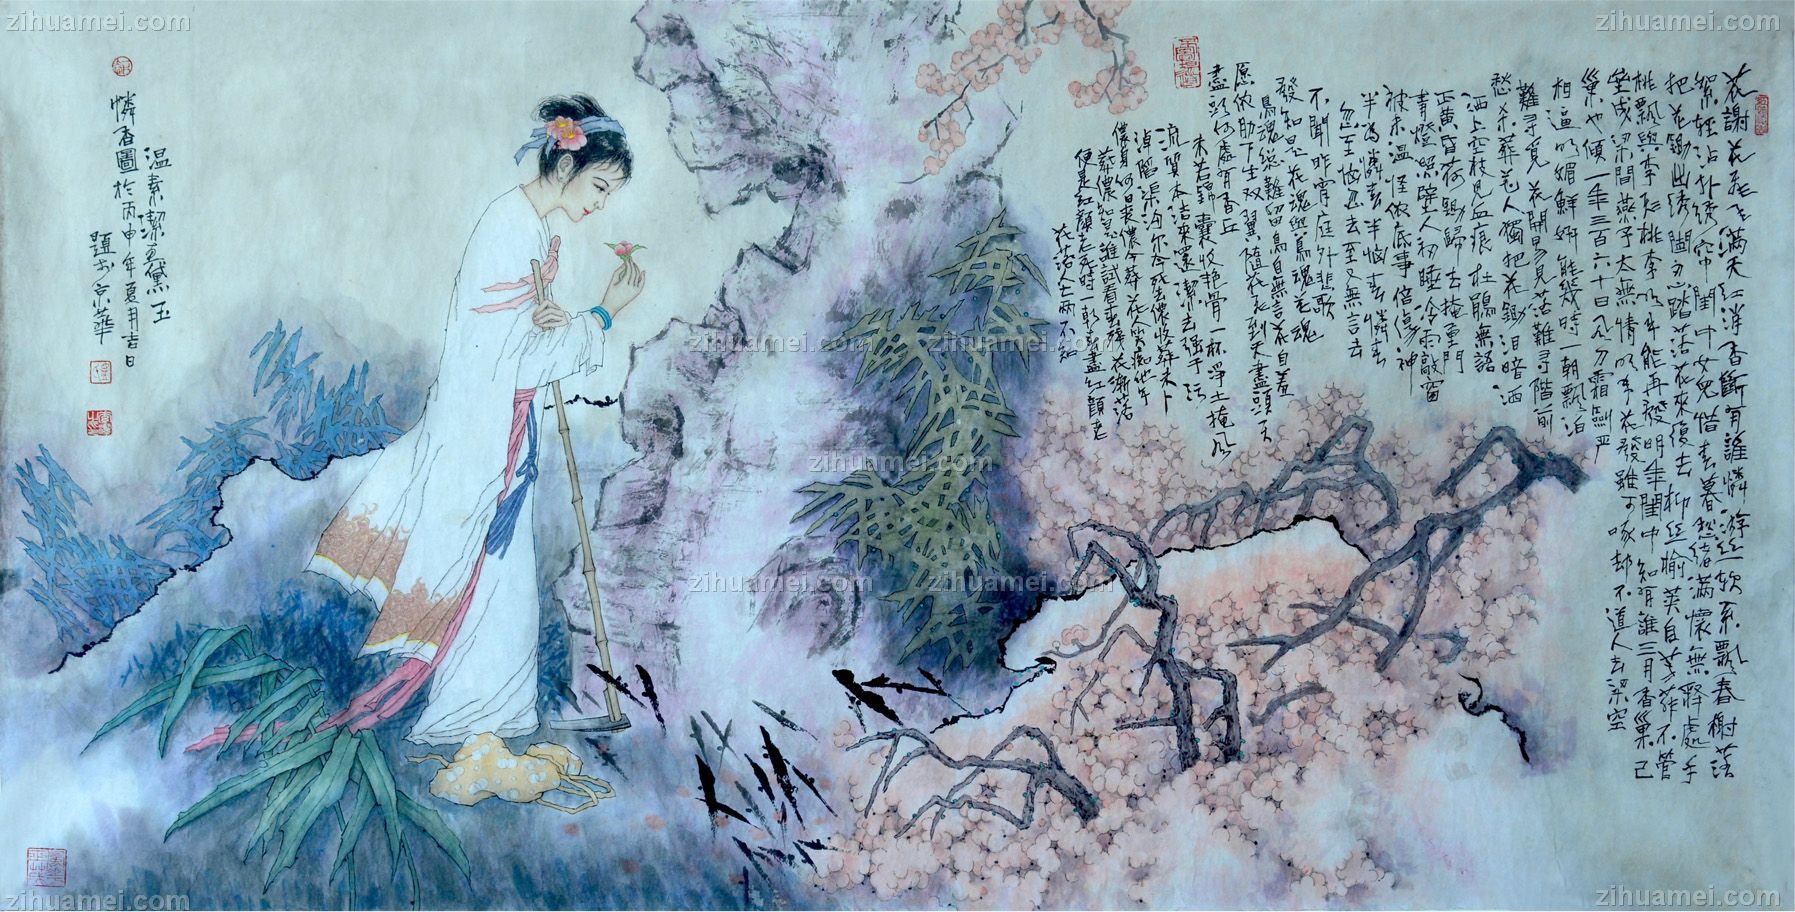 花謝花飛飛滿天红消香斷有誰憐游丝软系飄春榭落
絮轻沾扑绣帘闺中女兒惜春暮愁绪滿懷無釋處手
把花锄出绣闺忍踏落花來復去柳丝榆荚自芳菲不管
桃飄與李飛桃李明年能再發明年閨中知有誰三月香巢已
壘成梁間燕子太無情明年花發雖可啄却不道人去梁空
巢也傾一年三百六十日風刀霜劍严
相逼明媚鮮妍能幾時一朝飄泊
難寻覓花開易見落難寻階前
愁杀葬花人獨把花锄泪暗洒
洒上空枝見血痕杜鵑無語
正黄昏荷锄歸去掩重門
青燈照壁人初睡冷雨敲窗
被未温怪侬底事倍傷神
半為憐春半恼春憐春
忽至恼忽去至又無言去
不聞昨宵庭外悲歌
發知是花魂與鳥魂花魂
鳥魂总難留鳥自無言花自羞
愿侬肋下生双翼隨花飛到天盡頭天
盡頭何處有香丘
未若錦囊收艳骨一杯淨土掩風
流質本洁來還潔去强于污
淖陷渠沟尔今死去儂收葬未卜
儂身何日丧儂今葬花人笑痴他年
葬儂知是誰試看春殘花渐落
便是红顏老死時一朝春盡红顏老
花落人亡两不知
温素潔画黛玉
憐香圖於丙申年夏月吉日
題於京華
zihuamei.com
zihuamei.com
zihuamei.com
zihuamei.com
zihuamei.com
zihuamei.com
zihuamei.com
zihuamei.com
zihuamei.com